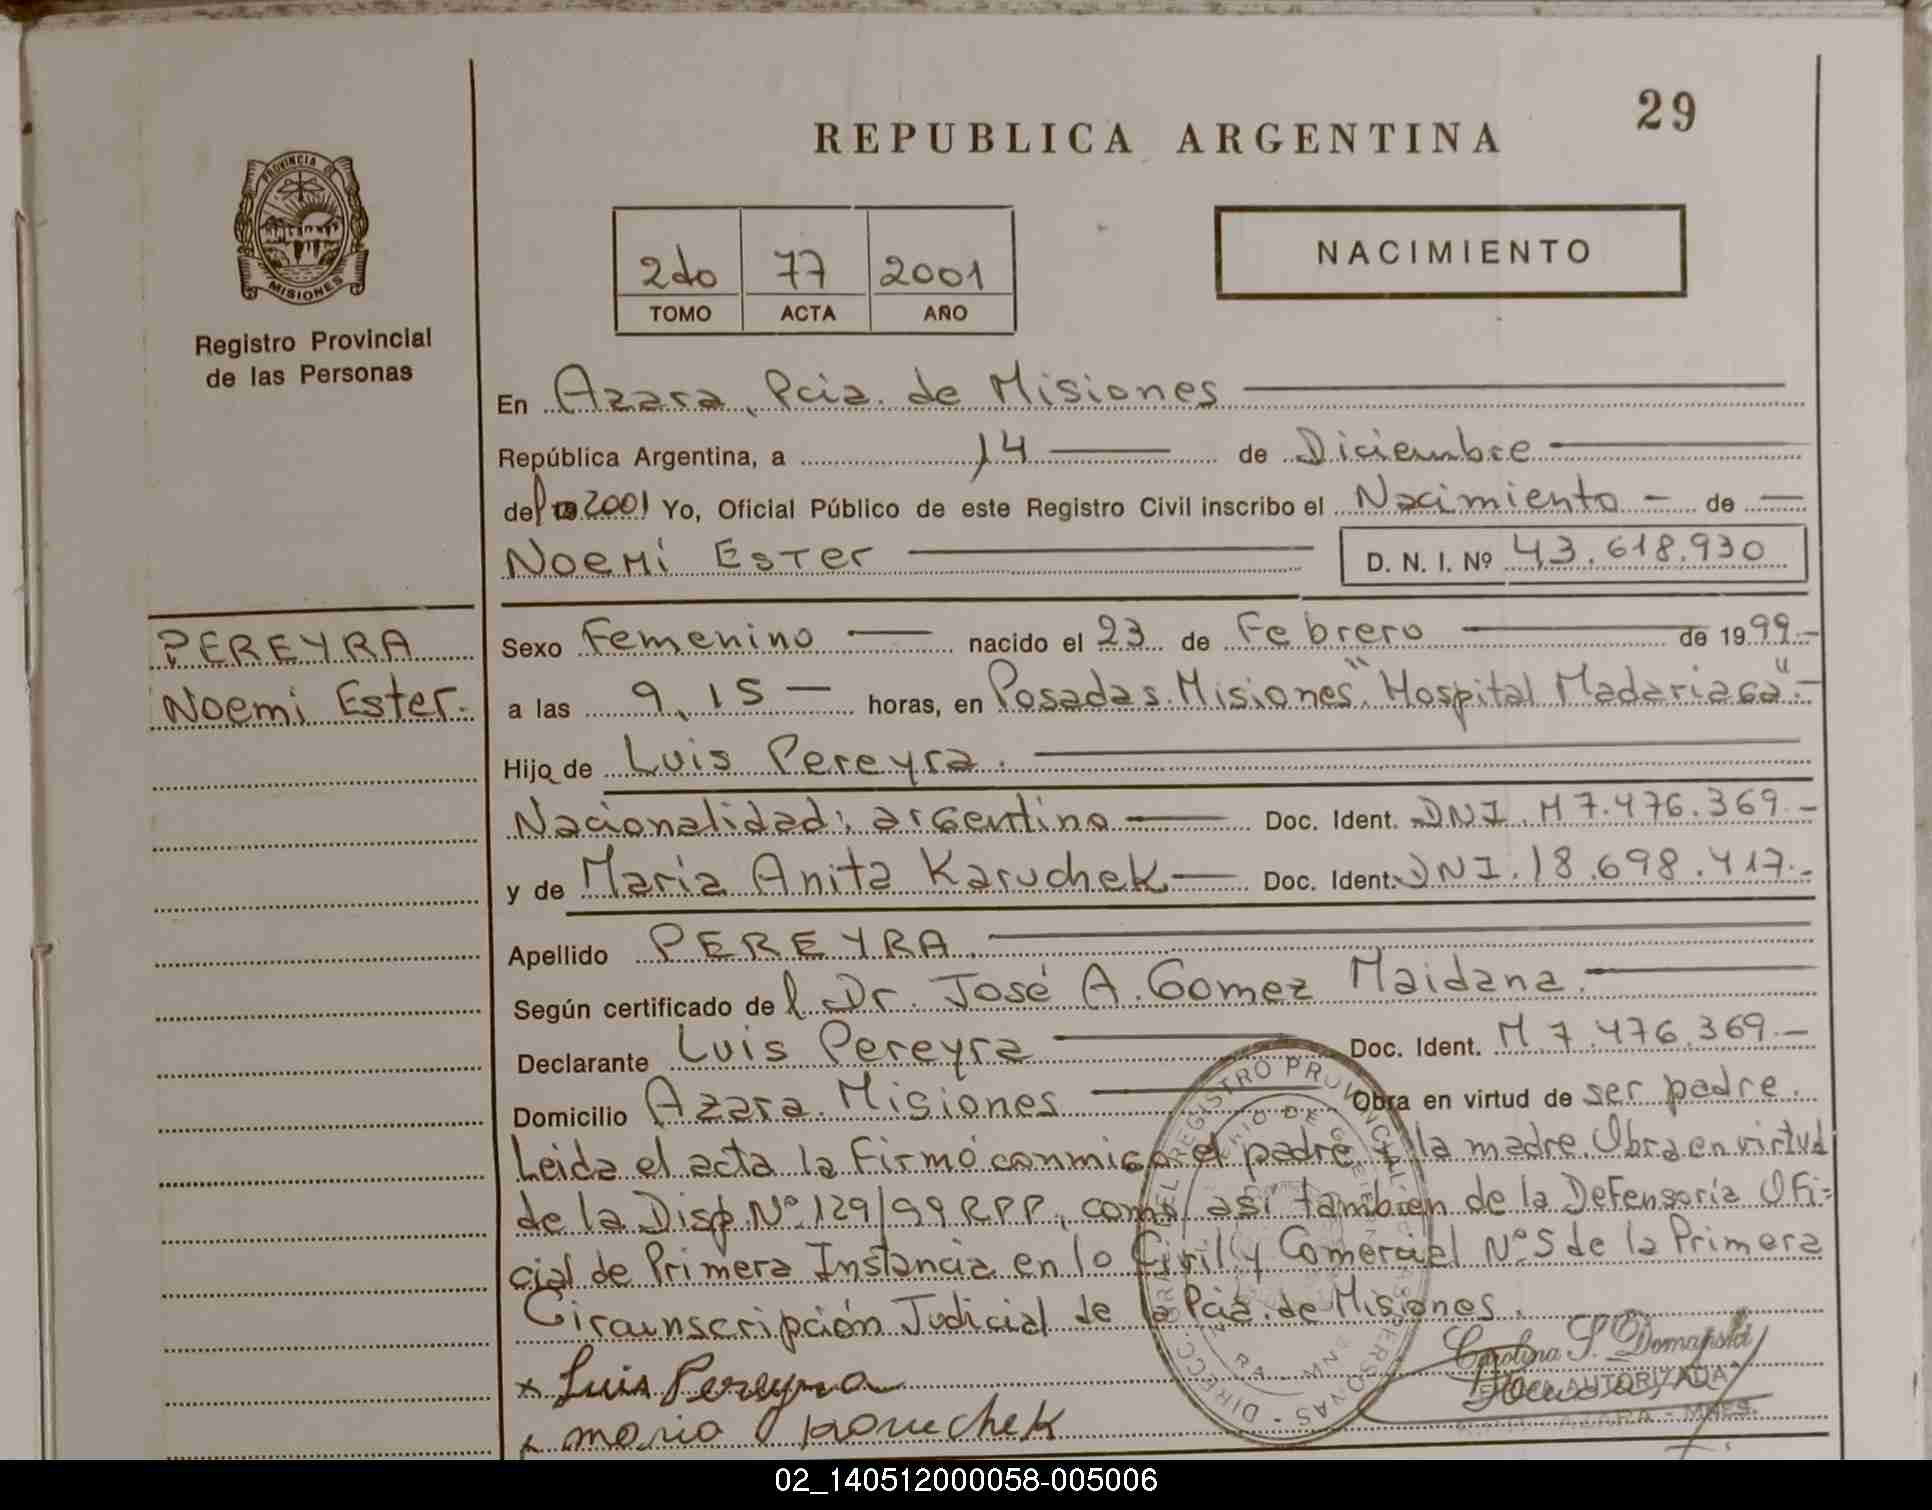 29
REPUBLICA ARGENTINA
PROVINCIA DE
MISIONES
Registro Provincial
de las Personas
2do 77 2001
TOMO ACTA AÑO
NACIMIENTO
En Azara, Pcia. de Misiones
República Argentina, a 14 de Diciembre
del 19 2001 Yo, Oficial Público de este Registro Civil inscribo el Nacimiento - de
Noemí Ester D. N. I. Nº 43.618.930
PEREYRA
Noemi Ester.
Sexo Femenino nacido el 23 de Febrero de 1999.-
a las 9,15 horas, en Posadas. Misiones "Hospital Madariaga".-
Hija de Luis Pereyra.
Nacionalidad: argentino Doc. Ident. DNI. M 7.476.369.-
y de María Anita Karuchek Doc. Ident. DNI. 18.698.417.-
Apellido PEREYRA.
Según certificado del Dr. José A. Gomez Maidana.
Declarante Luis Pereyra Doc. Ident. M 7.476.369.-
Domicilio Azara. Misiones Obra en virtud de ser padre.
Leida el acta la firmó conmigo el padre y la madre. Obra en virtud
de la Disp. Nº 129/99 RPP, como así tambien de la Defensoría Ofi=
cial de Primera Instancia en lo Civil y Comercial Nº 5 de la Primera
Circunscripción Judicial de la Pcia. de Misiones.
x Luis Pereyra
x maria karuchek
Carolina S.
AUTORIZADA
AZARA - MNES.
DIRECC. GRAL. DEL REGISTRO PROVINCIAL DE LAS PERSONAS
02_140512000058-005006